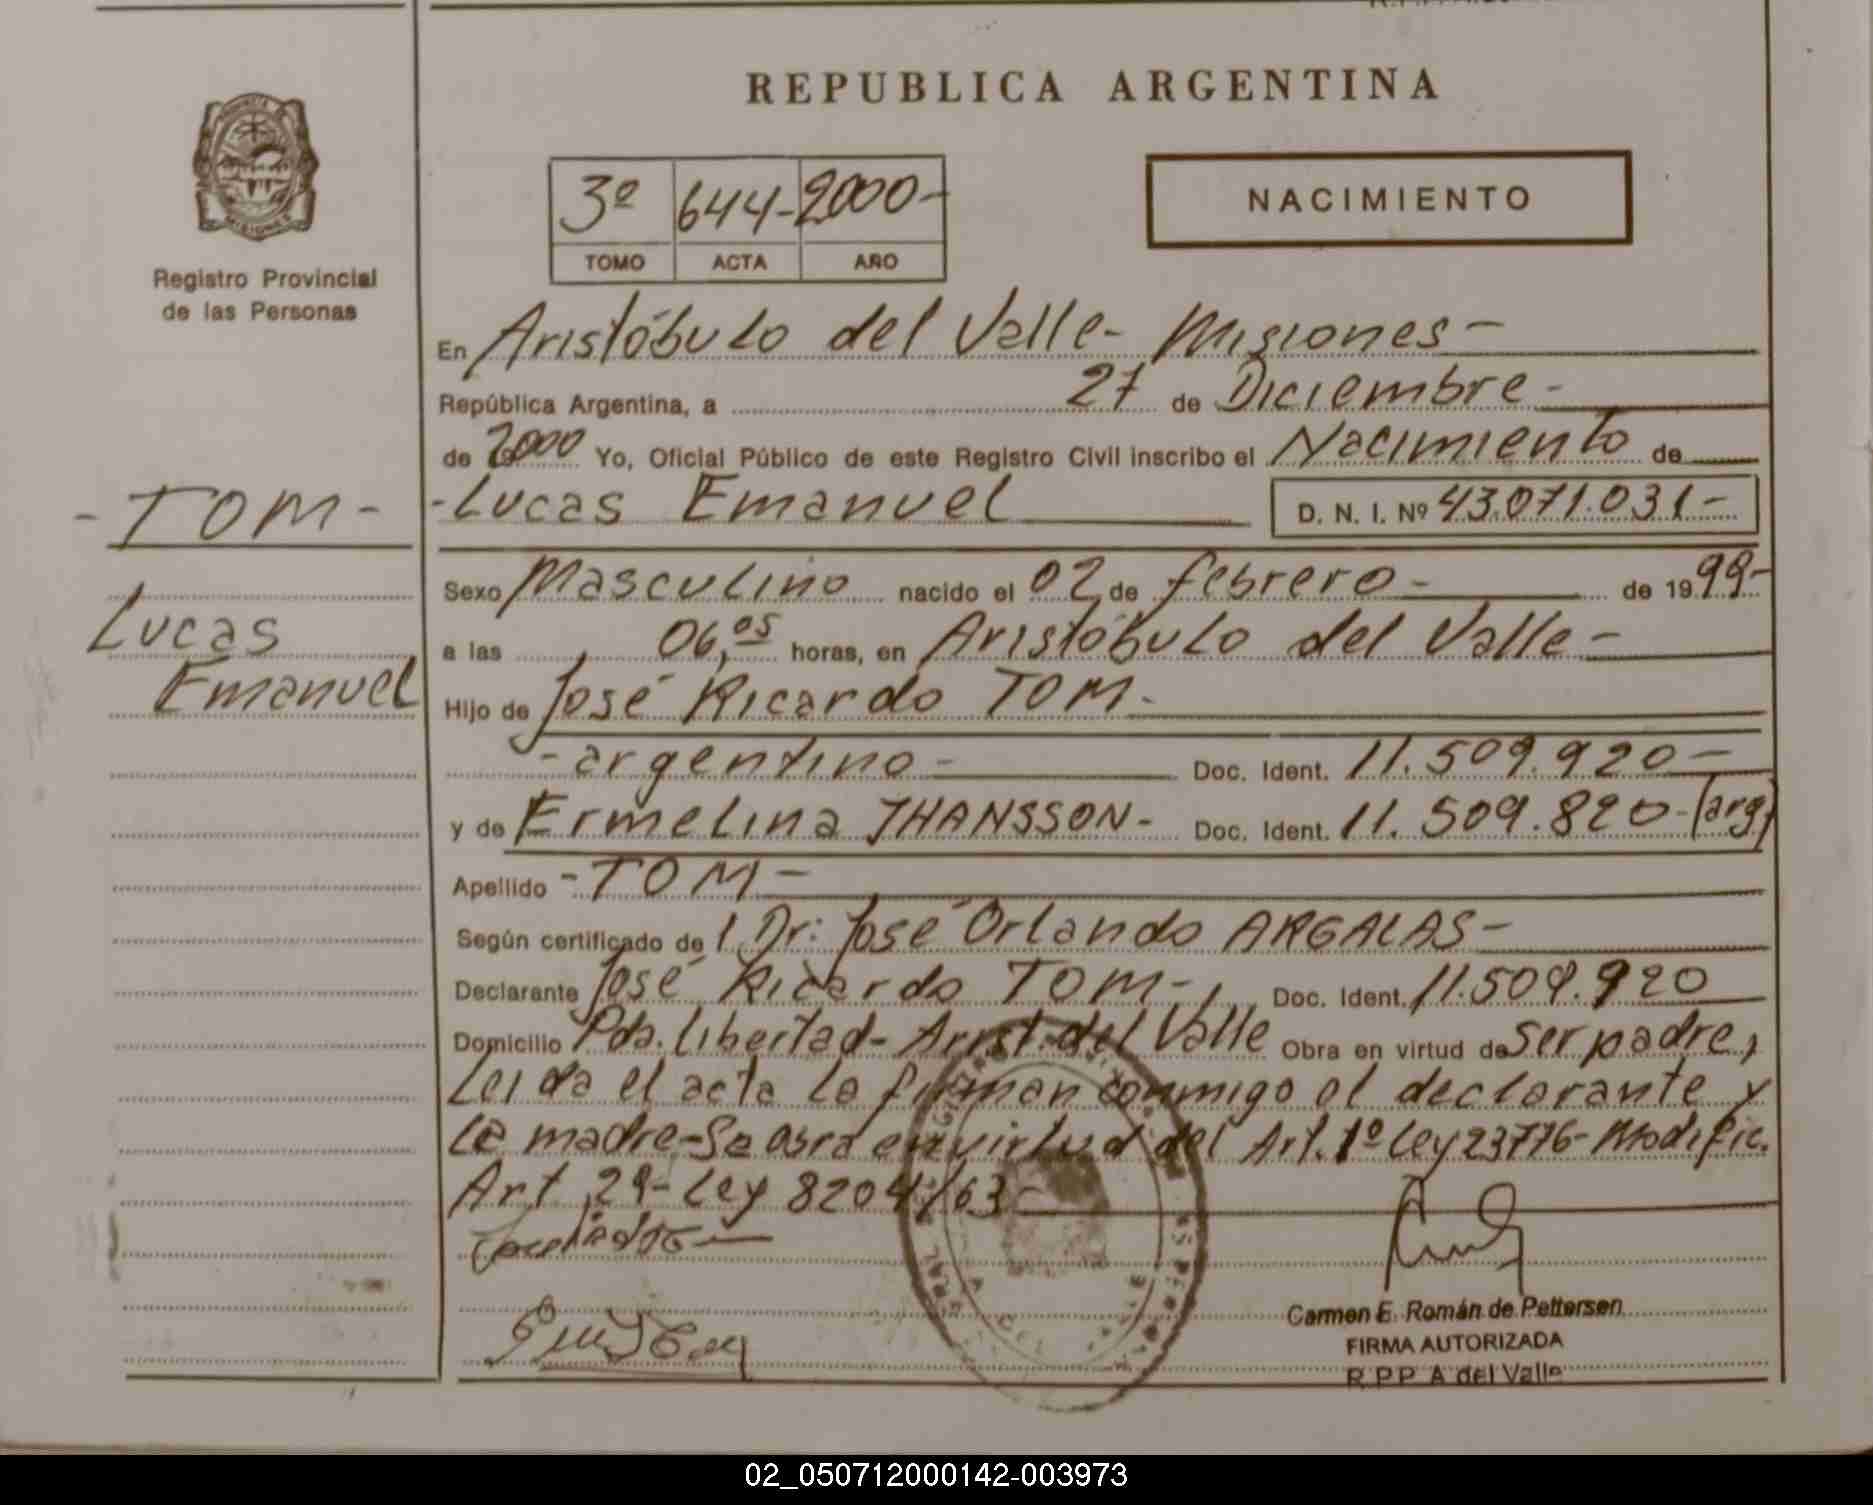 REPUBLICA ARGENTINA
3º 644- 2000-
TOMO ACTA AÑO
NACIMIENTO
Registro Provincial
de las Personas
En Aristóbulo del Valle- Misiones-
República Argentina, a 27 de Diciembre-
de 2000 Yo, Oficial Público de este Registro Civil inscribo el Nacimiento de
-TOM-
-Lucas Emanuel D. N. I. Nº 43.071.031-
Sexo Masculino nacido el 02 de febrero- de 1999-
Lucas
a las 06,05 horas, en Aristóbulo del Valle-
Emanuel
Hijo de José Ricardo TOM-
-argentino- Doc. Ident. 11.509.920-
y de Ermelina JHANSSON- Doc. Ident. 11.509.820-(arg)
Apellido -TOM-
Según certificado de l Dr: José Orlando ARGALAS-
Declarante José Ricardo TOM- Doc. Ident. 11.509.920
Domicilio Pda. Libertad- Arist. del Valle Obra en virtud de ser padre,
Leida el acta la firman conmigo el declarante y
la madre-Se obra en virtud del Art. 1º Ley 23776- Modific.
Art 29- Ley 8204/63-
Carmen E. Román de Pettersen
FIRMA AUTORIZADA
R.P.P. A. del Valle
02_050712000142-003973